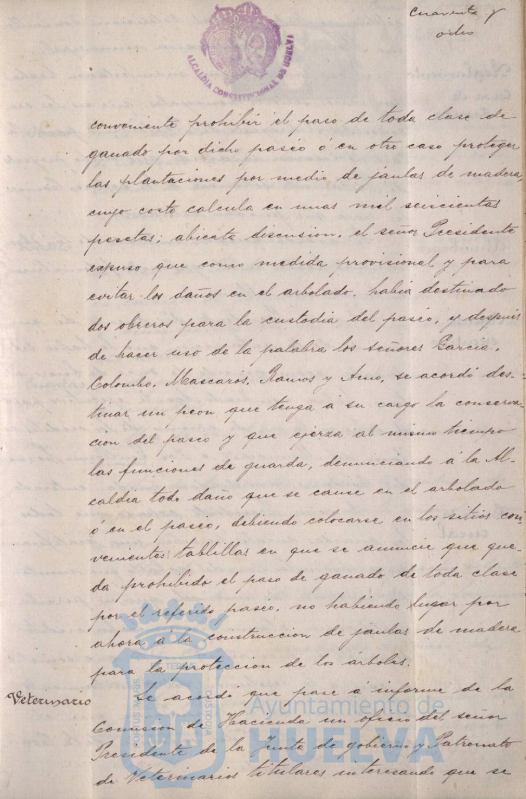 Cuarenta y
ocho
ALCALDIA CONSTITUCIONAL DE HUELVA
conveniente prohibir el paso de toda clase de
ganado por dicho paseo ó en otro caso proteger
las plantaciones por medio de jaulas de madera
cuyo costo calcula en unas mil seiscientas
pesetas; abierta discusion, el señor Presidente
expuso que como medida provisional y para
evitar los daños en el arbolado, habia destinado
dos obreros para la custodia del paseo, y despues
de hacer uso de la palabra los señores Garcia,
Colombo, Mascarós, Ramos y , se acordó des-
tinar un peon que tenga á su cargo la conserva-
cion del paseo y que ejerza al mismo tiempo
las funciones de guarda, denunciando á la Al-
caldia todo daño que se cause en el arbolado
ó en el paseo, debiendo colocarse en los sitios con-
venientes tablillas en que se anuncie que que-
da prohibido el paso de ganado de toda clase
por el referido paseo, no habiendo lugar por
ahora á la construccion de jaulas de madera
para la proteccion de los árboles.
Veterinario
Se acordó que pase á informe de la
Comision de Hacienda un oficio del señor
Presidente de la Junta de gobierno y Patronato
de Veterinarios titulares interesando que se
Ayuntamiento de
HUELVA